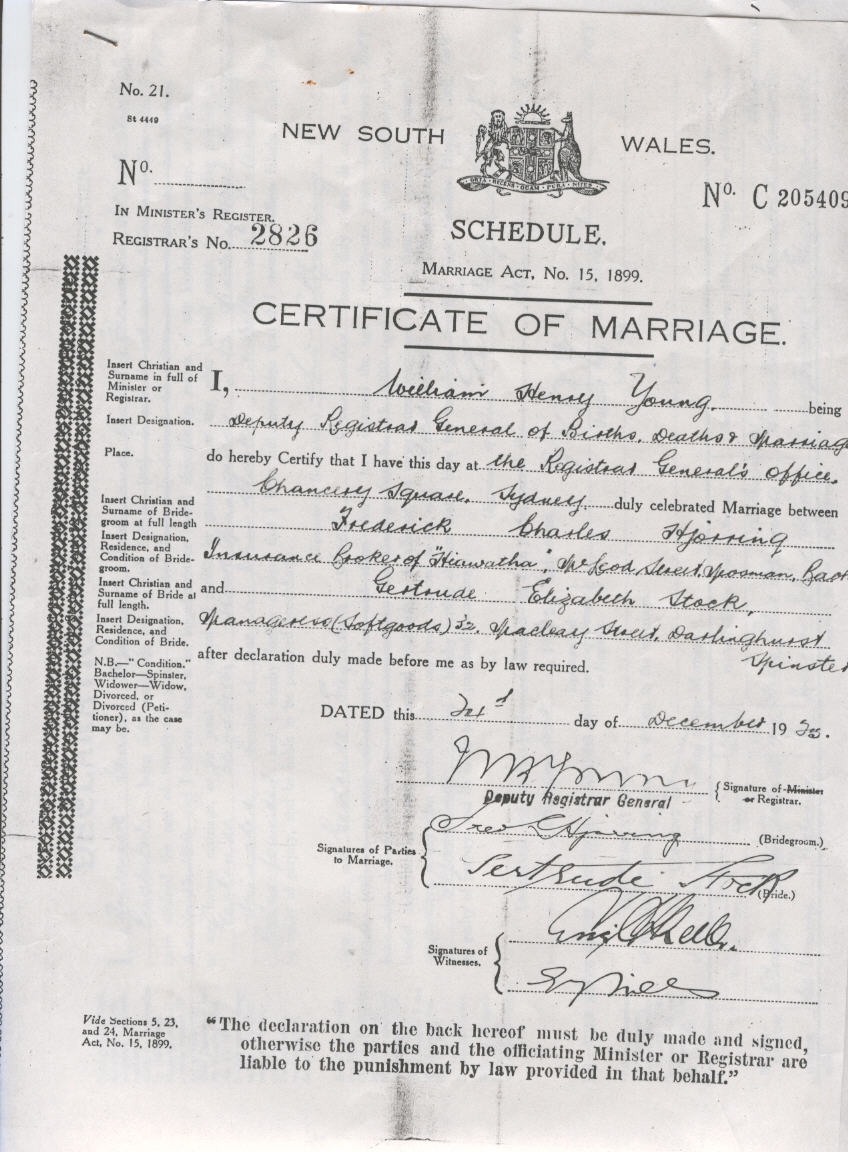 No. 21.
St 4449
NEW SOUTH WALES.
No.
No. C 205409
IN MINISTER'S REGISTER.
REGISTRAR'S No. 2826
SCHEDULE.
MARRIAGE ACT, No. 15, 1899.
CERTIFICATE OF MARRIAGE.
Insert Christian and
Surname in full of
Minister or
Registrar.
I, William Henry Young. being
Insert Designation.
Deputy Registrar General of Births, Deaths & Marriag
Place.
do hereby Certify that I have this day at the Registrar General's office.
Chancery Square, Sydney duly celebrated Marriage between
Insert Christian and
Surname of Bride-
groom at full length
Frederick Charles Hjorring
Insert Designation,
Residence, and
Condition of Bride-
groom.
Insurance Broker of "Hiawatha", Street, Mosman, Bach
Insert Christian and
Surname of Bride at
full length.
and Gertrude Elizabeth Stock,
Insert Designation,
Residence, and
Condition of Bride.
Manageress (Softgoods) 52, Macleay Street, Darlinghurst
Spinster
N.B.—"Condition."
Bachelor—Spinster,
Widower—Widow,
Divorced, or
Divorced (Peti-
tioner), as the case
may be.
after declaration duly made before me as by law required.
DATED this day of December 19
Signature of Minister
or Registrar.
Deputy Registrar General
Signatures of Parties
to Marriage.
(Bridegroom.)
Gertrude Stock
(Bride.)
Signatures of
Witnesses.
Vide Sections 5, 23,
and 24, Marriage
Act, No. 15, 1899.
"The declaration on the back hereof must be duly made and signed,
otherwise the parties and the officiating Minister or Registrar are
liable to the punishment by law provided in that behalf."